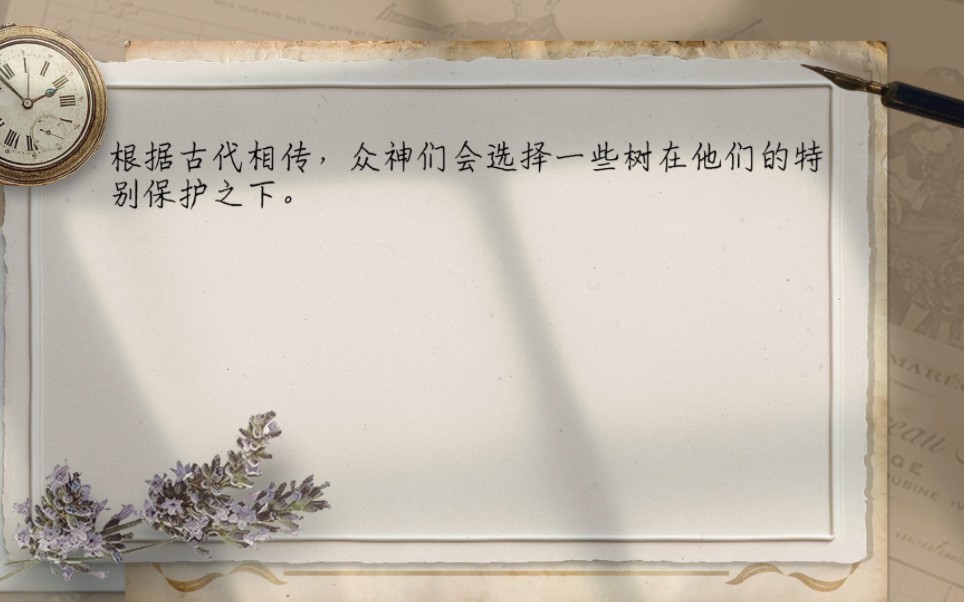 根据古代相传，众神们会选择一些树在他们的特
别保护之下。